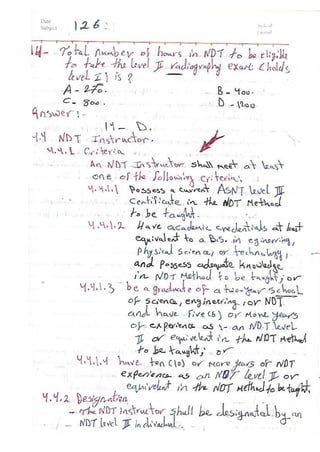 Date
Subject
126:
14- Total number of hours in NDT to be eligible
to take the level II radiography exam (holds
level I) is?
A- 270.
B- 400.
C- 800.
D- 1200
Answer:-
14- D.
4.4 NDT Instructor.
4.4.1 Criteria
An NDT Instructor shall meet at least
one of the following criteria:
4.4.1.1 Possess a current ASNT level III
Certificate in the NDT Method
to be taught.
4.4.1.2 Have academic credentials at best
equivalent to a B.S. in egineering,
physical science, or technology,
and possess adequate knowledge
in NDT Method to be taught; or
4.4.1.3 be a graduate of a two-year school
of science, engineering, or NDT
and have five (5) or more years
of experience as :- an NDT level
II or equivelent in the NDT Method
to be taught; or
4.4.1.4 have ten (10) or more years of NDT
experience as an NDT level II or
equivelent in the NDT Method to be taught.
4.4.2 Designation
- The NDT instructor shall be designated by an
- NDT level III individual.